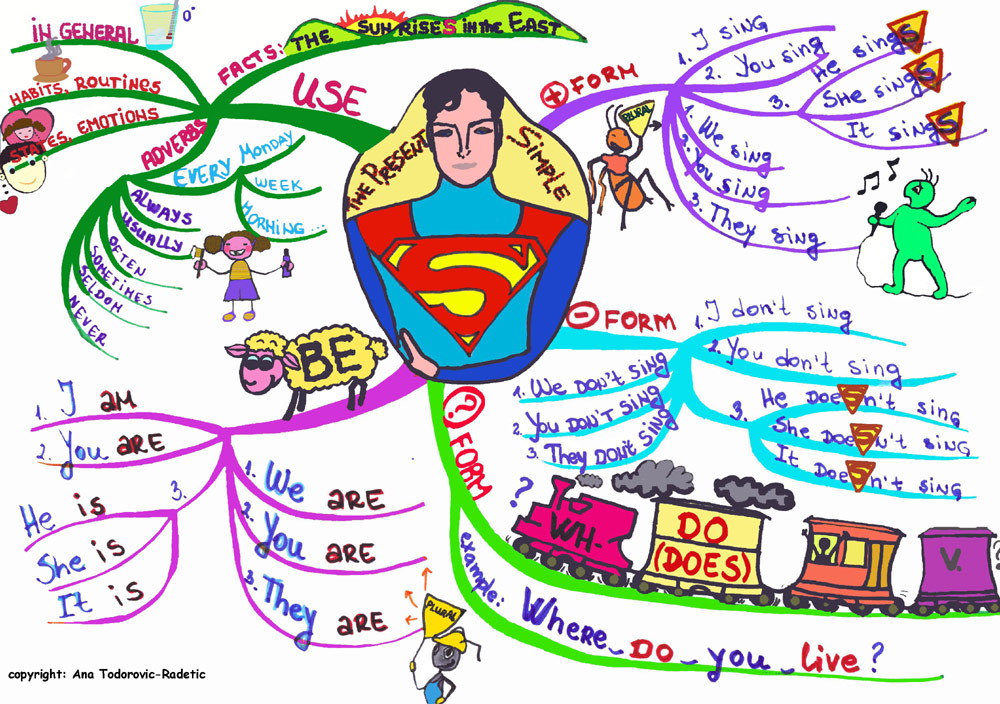 THE PRESENT SIMPLE
S
USE
FACTS: THE SUN RISES in the EAST
IN GENERAL
0°
HABITS, ROUTINES
STATES, EMOTIONS
ADVERBS
EVERY Monday
WEEK
MORNING...
ALWAYS
USUALLY
OFTEN
SOMETIMES
SELDOM
NEVER
+ FORM
1. I SING
2. You sing
3. He singS
She singS
It singS
PLURAL
1. We sing
2. You sing
3. They sing
- FORM
1. I don't sing
2. You don't sing
3. He DoeSn't sing
She DoeSn't sing
It DoeSn't sing
1. We DON'T SING
2. You DON'T SING
3. They DON'T SING
? FORM
?
WH-
DO
(DOES)
V.
?
example: Where - DO - you - live?
BE
1. I AM
2. You ARE
3. He is
She is
It is
1. We ARE
2. You ARE
3. They ARE
PLURAL
copyright: Ana Todorovic-Radetic